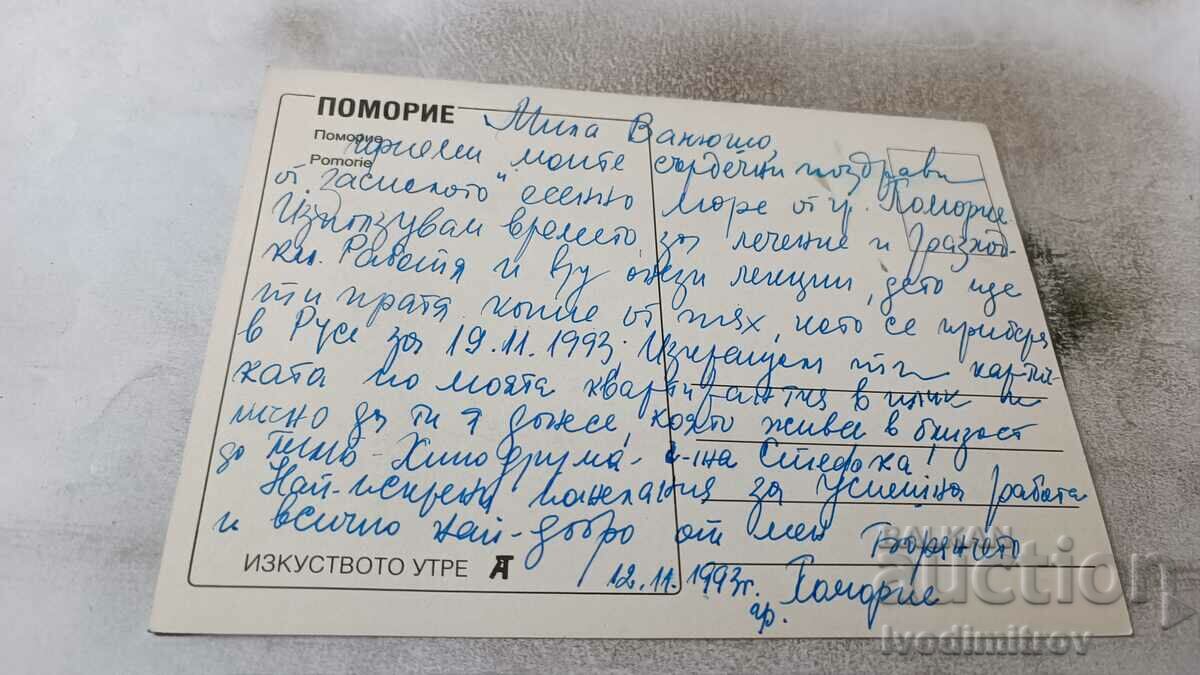 ПОМОРИЕ
Поморие
Pomorie
Мила Ванюшо,
приеми моите сърдечни поздрави
от есенно море от гр. Поморие.
Използувам времето за лечение и разход-
ки. Работя и върху онези лекции, дето ще
ти пратя копие от тях, като се прибера
в Русе за 19.11.1993. Изпращам ти картич-
ката по моята квартирантка в плик и
лично да ти я даже, която живее в близост
до - Хиподрума - г-жа
Най-искрени пожелания за успешна работа
и всичко най-добро от мен
12.11.1993г. Поморие
гр.
ИЗКУСТВОТО УТРЕ
БАЛКАН
auction
Ivodimitrov